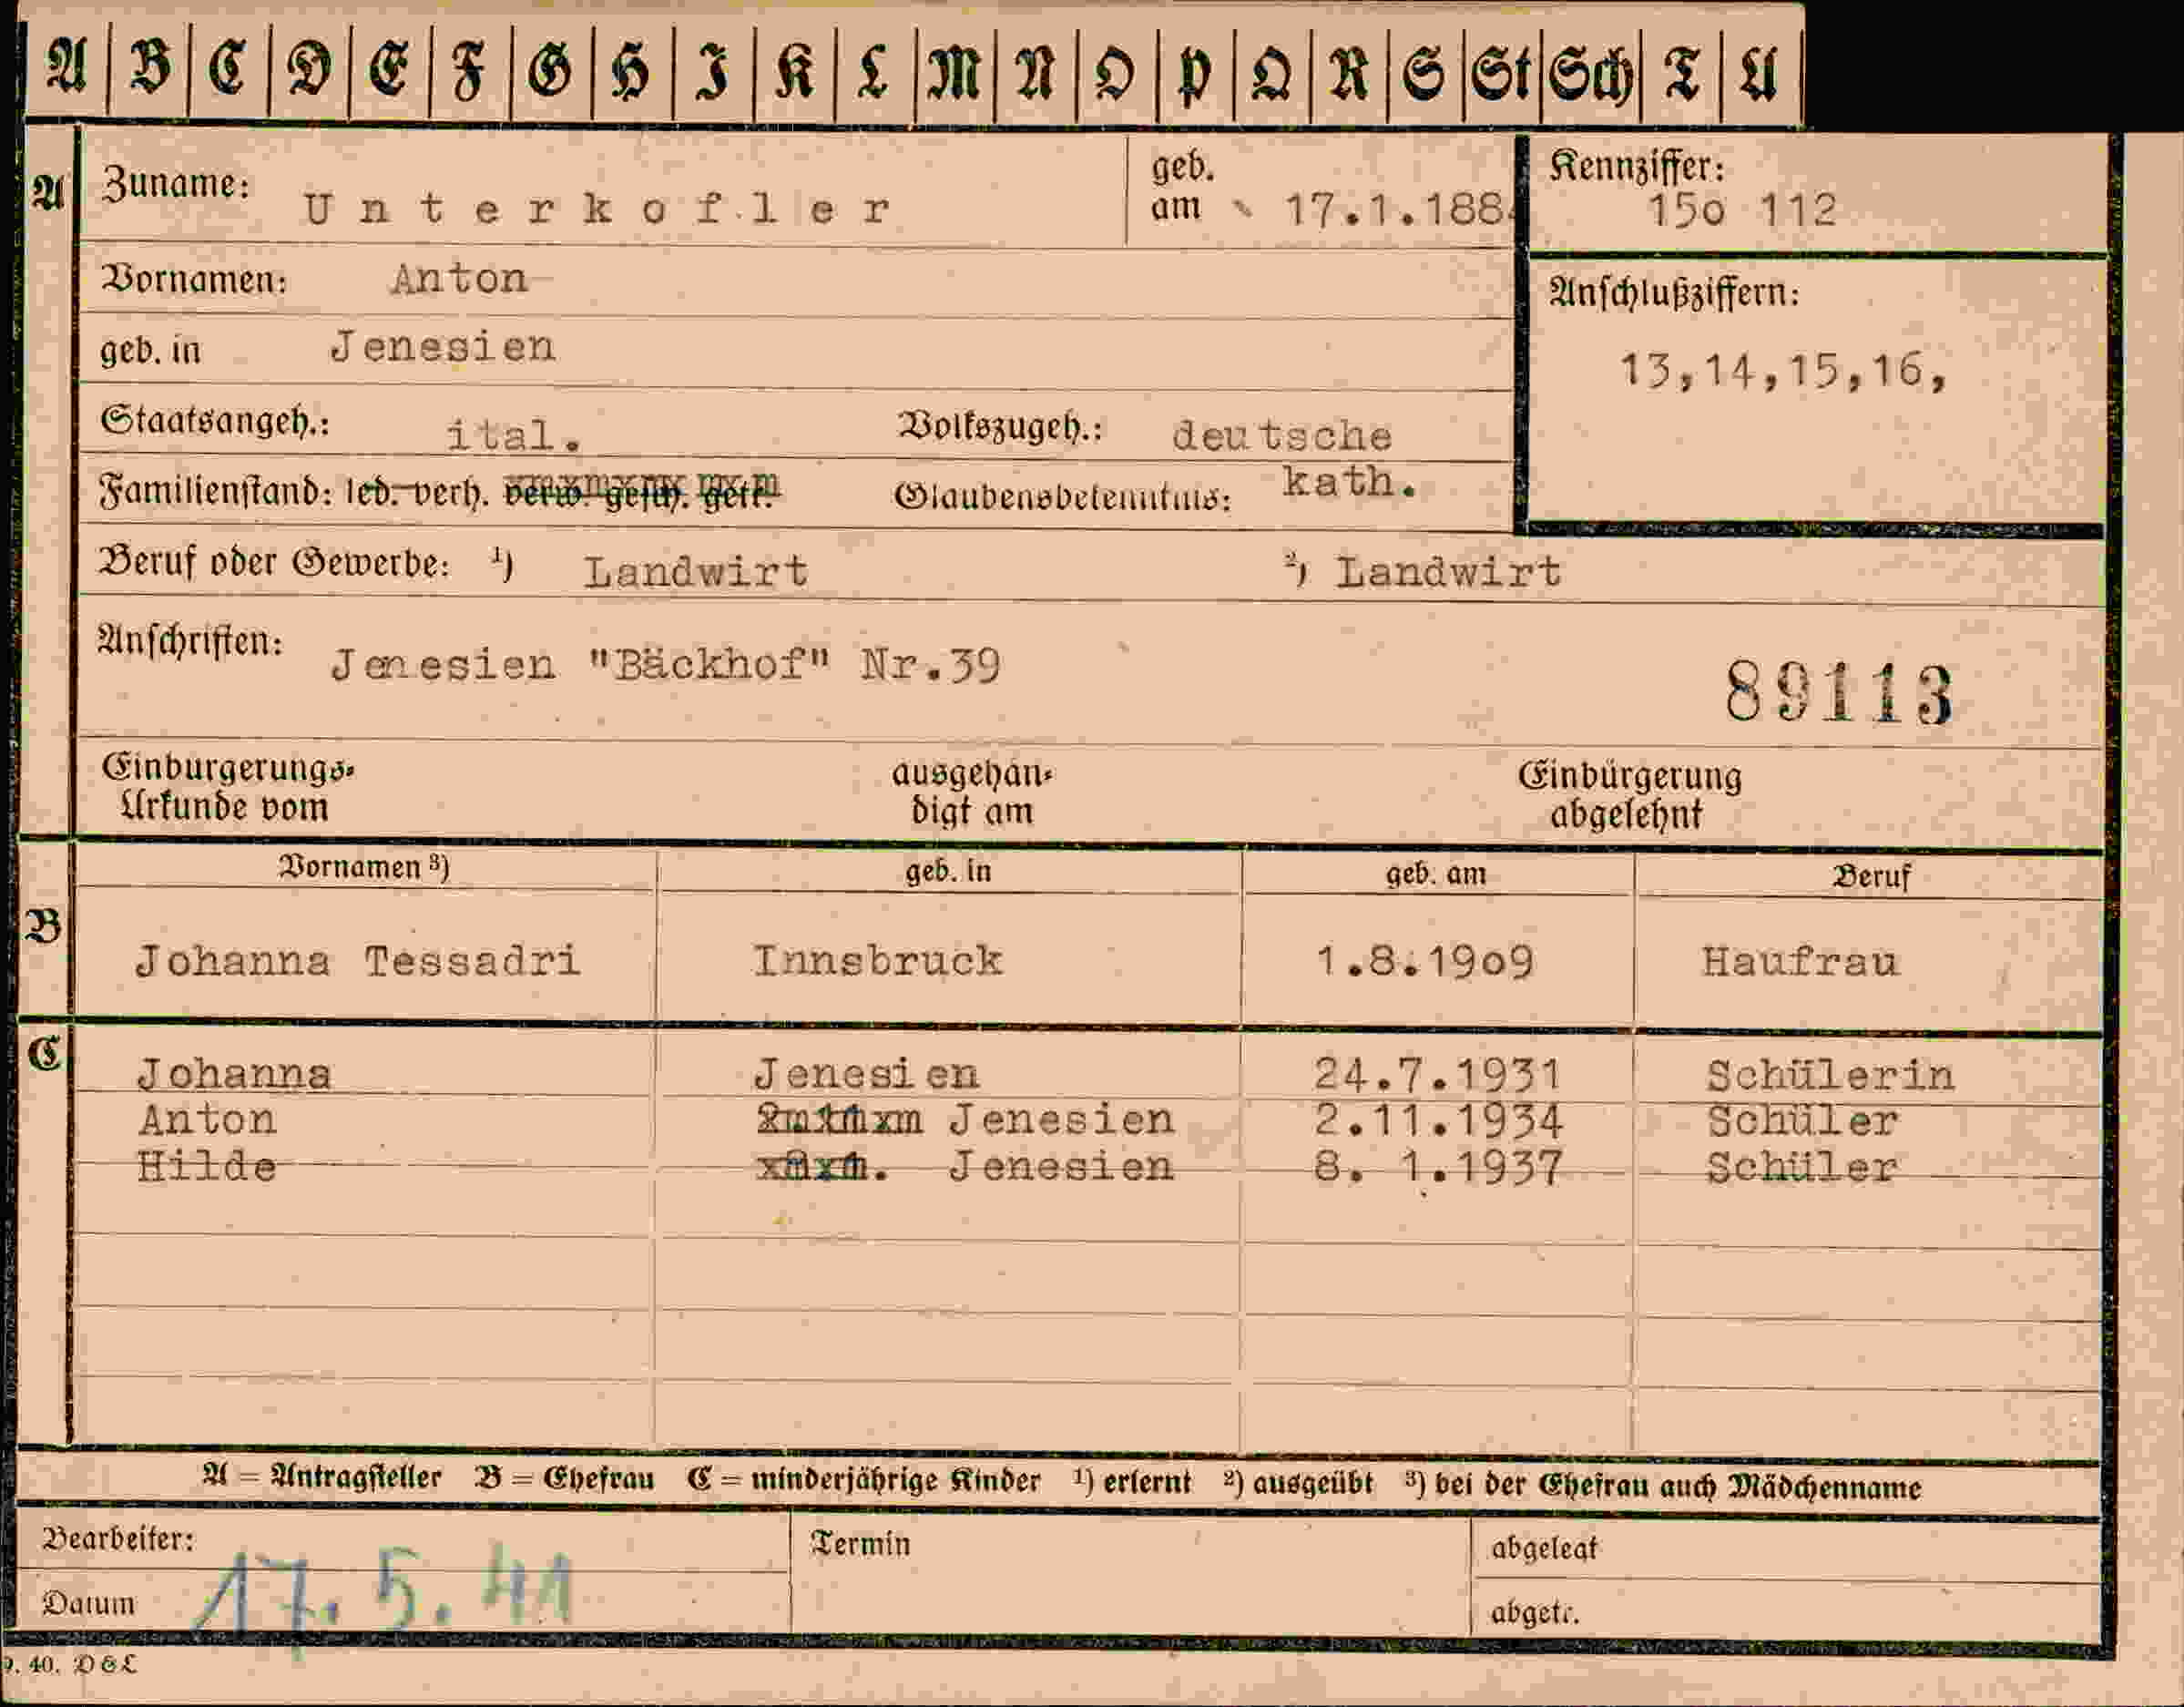 A B C D E F G H I K L M N O P Q R S St Sch T U
A Zuname: Unterkofler geb. am 17.1.188 Kennziffer: 15o 112
Vornamen: Anton
Anschlußziffern:
geb. in Jenesien 13,14,15,16,
Staatsangeh.: ital. Volkszugeh.: deutsche
Familienstand: led. verh. verw. gesch. getr. Glaubensbekenntnis: kath.
Beruf oder Gewerbe: ¹) Landwirt ²) Landwirt
Anschriften: Jenesien "Bäckhof" Nr.39 89113
Einbürgerungs- ausgehän- Einbürgerung
Urkunde vom digt am abgelehnt
Vornamen ³) geb. in geb. am Beruf
B Johanna Tessadri Innsbruck 1.8.19o9 Haufrau
C Johanna Jenesien 24.7.1931 Schülerin
Anton Jenesien 2.11.1934 Schüler
Hilde Jenesien 8. 1.1937 Schüler
A = Antragsteller B = Ehefrau C = minderjährige Kinder ¹) erlernt ²) ausgeübt ³) bei der Ehefrau auch Mädchenname
Bearbeiter: Termin abgelegt
Datum 17.5.41 abgetr.
9. 40. D&L